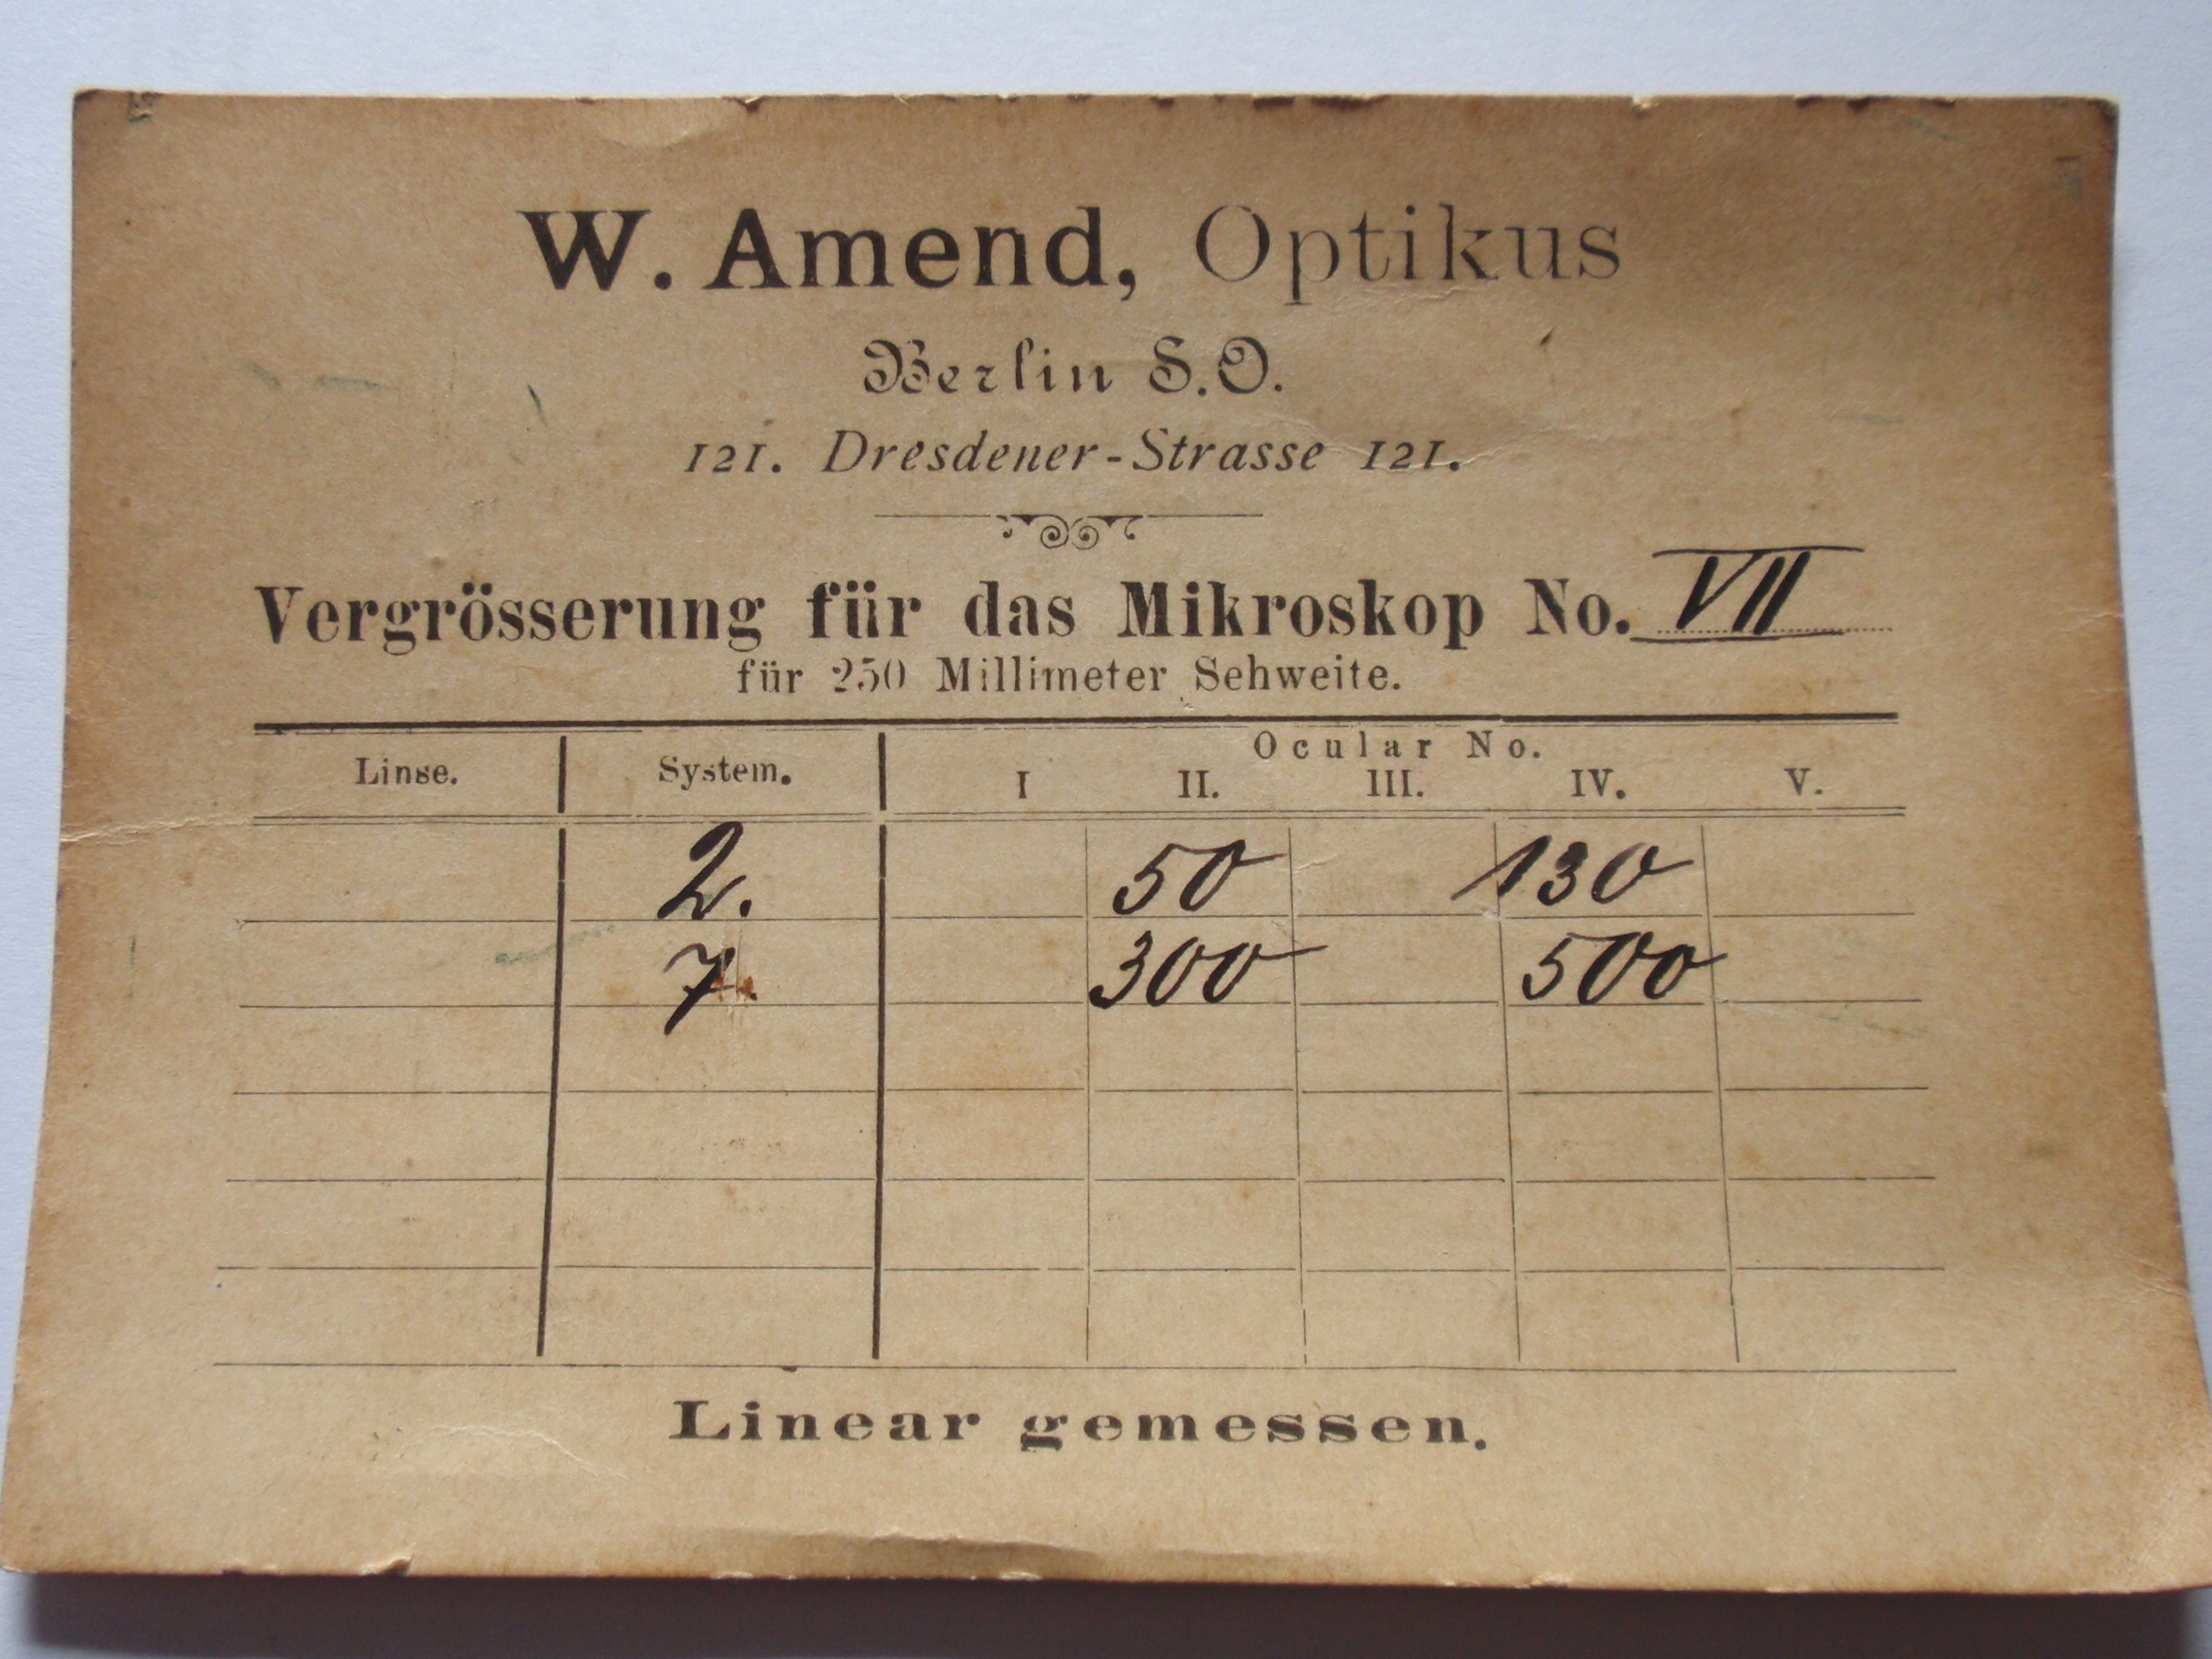 W. Amend, Optikus
Berlin S.O.
121. Dresdener-Strasse 121.
Vergrösserung für das Mikroskop No. VII
für 250 Millimeter Sehweite.
Linse. System. Ocular No.
I II. III. IV. V.
2. 50 130
7. 300 500
Linear gemessen.